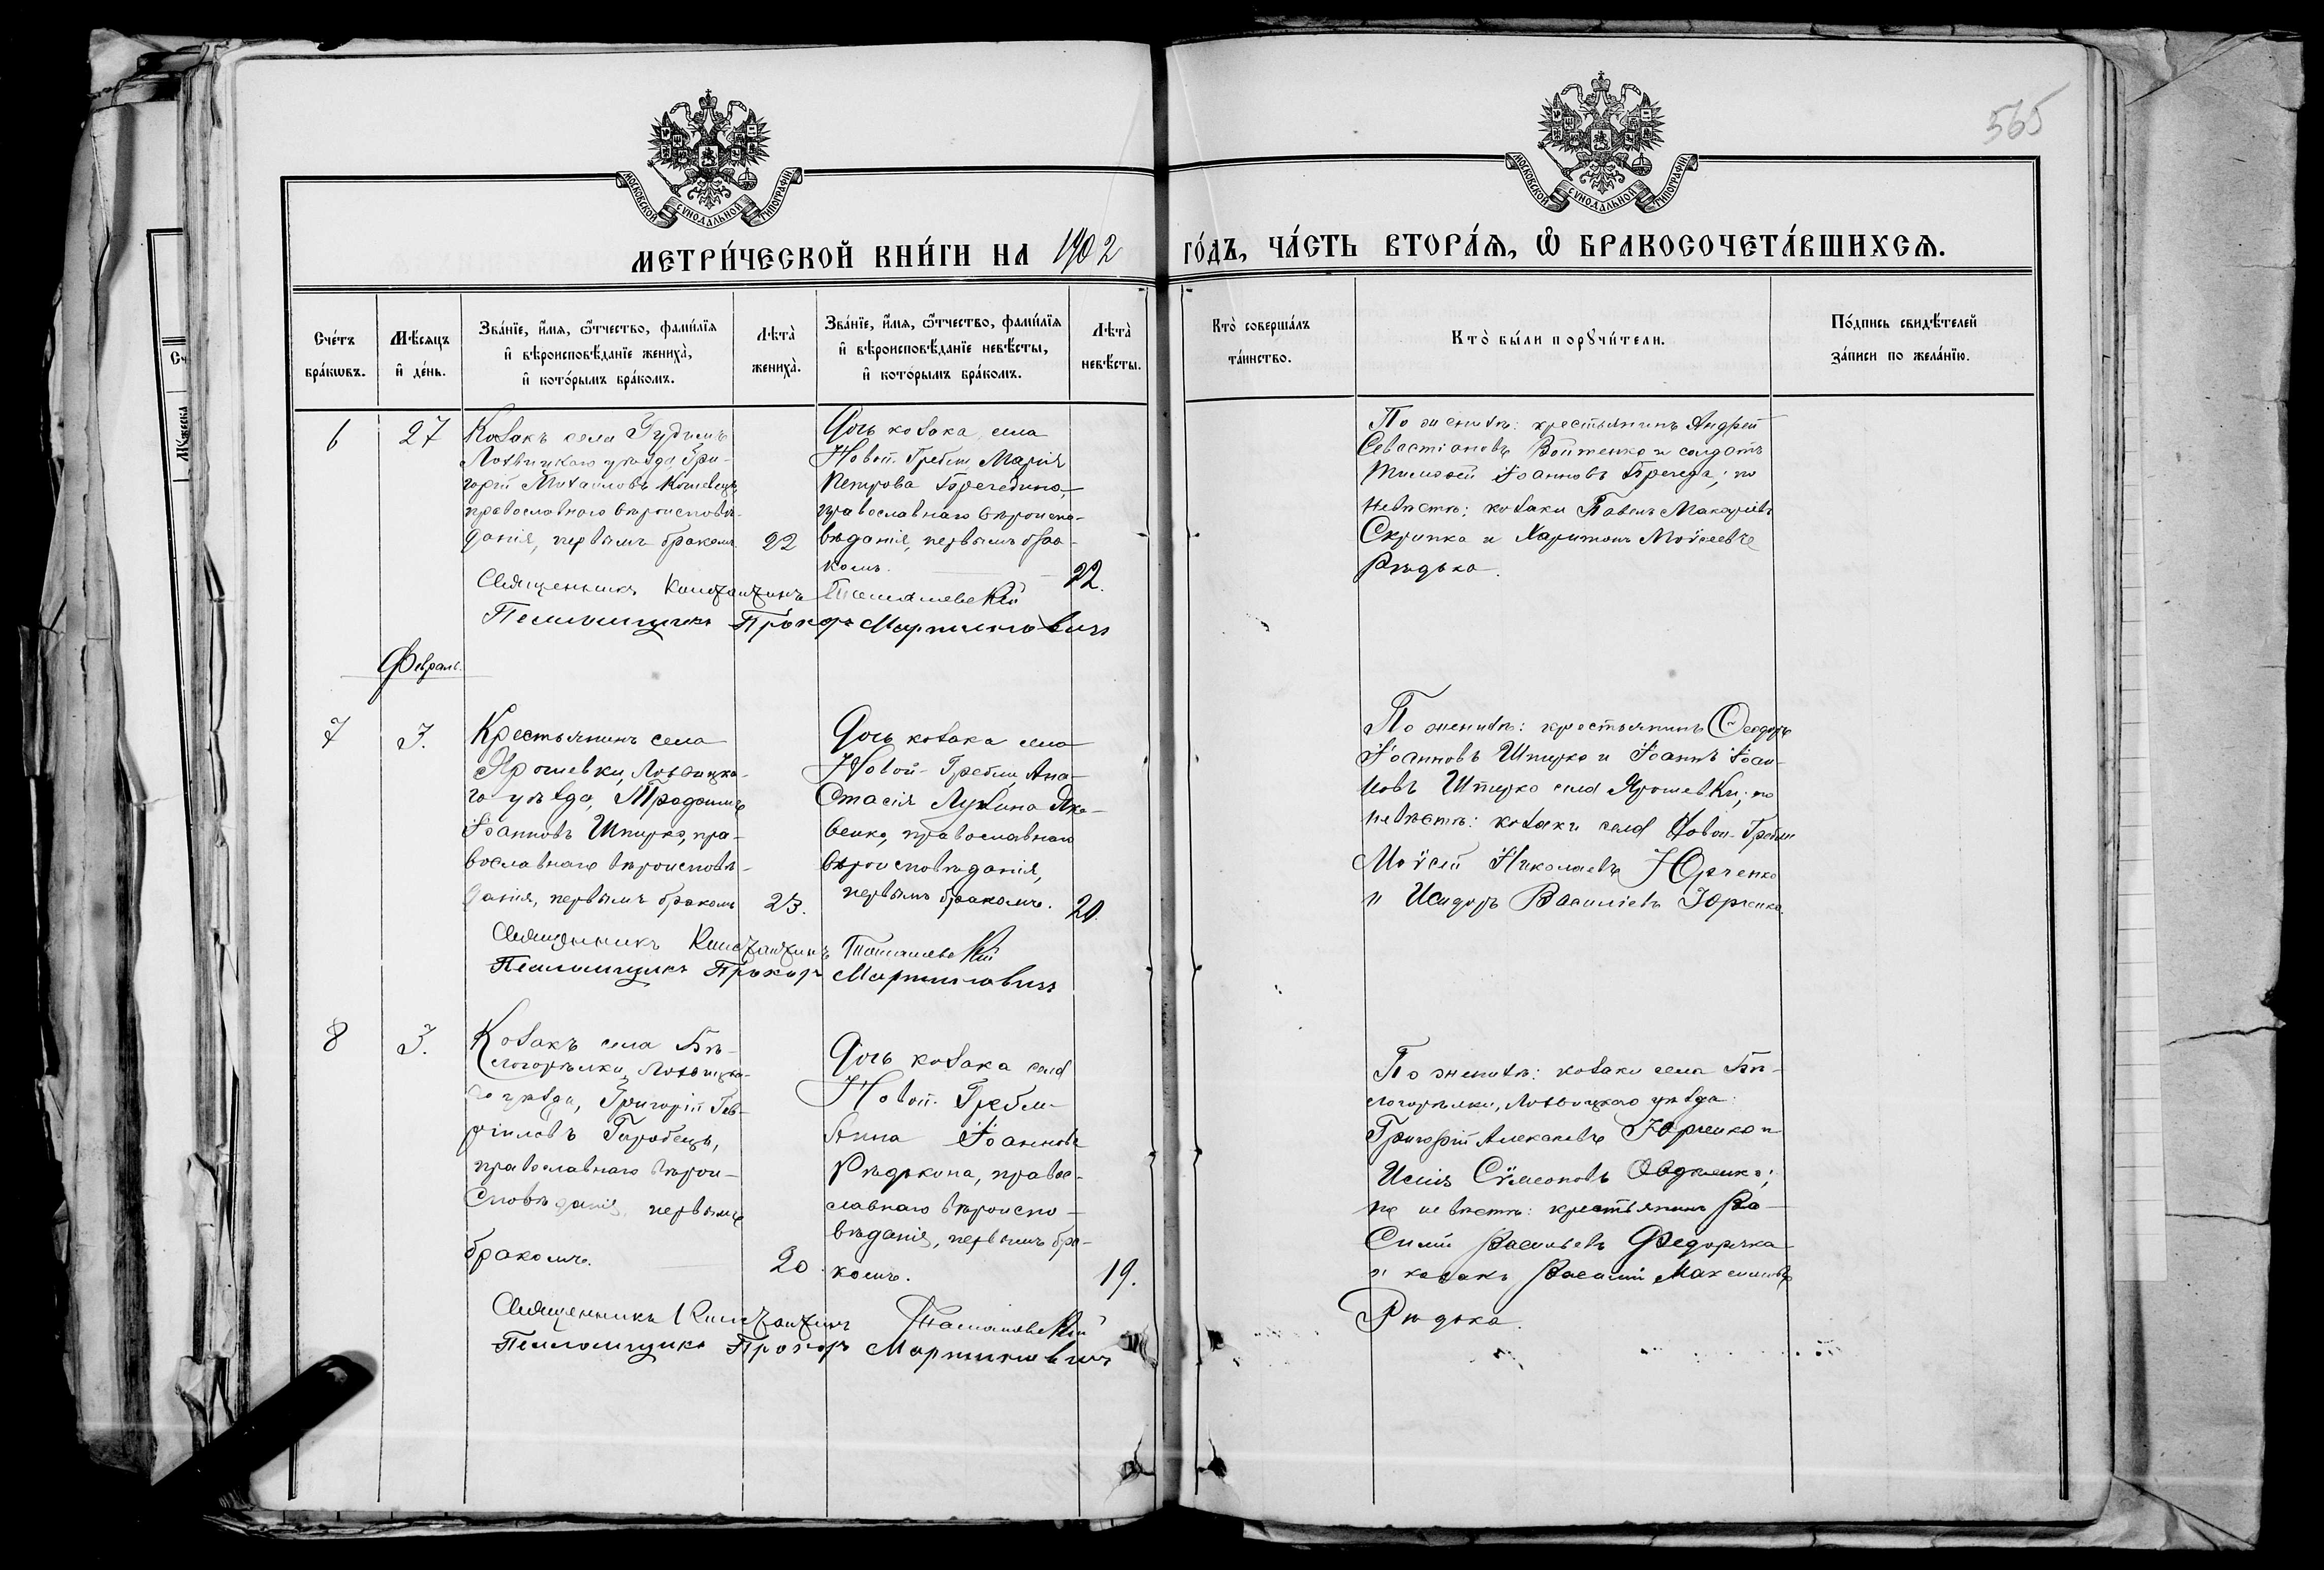 565
МОСКОВСКОЙ СУНОДАЛЬНОЙ ТИПОГРАФІИ
МОСКОВСКОЙ СУНОДАЛЬНОЙ ТИПОГРАФІИ
МЕТРИ́ЧЕСКОЙ КНИ́ГИ НА 1902 ГО́ДЪ, ЧА́СТЬ ВТОРА́Я, Ѡ БРАКОСОЧЕТА́ВШИХСЯ.
Сче́тъ бра́кѡвъ.
Мѣ́сяцъ и҆ де́нь.
Зва́нїе, и҆́мя, ѻ҆́тчество, фами́лїя
и҆ вѣроисповѣ́данїе жениха̀,
и҆ кото́рымъ бра́комъ.
Лѣта̀ жениха̀.
Зва́нїе, и҆́мя, ѻ҆́тчество, фами́лїя
и҆ вѣроисповѣ́данїе невѣ́сты,
и҆ кото́рымъ бра́комъ.
Лѣта̀ невѣ́сты.
Кто̀ соверша́лъ
та́инство.
Кто̀ бы́ли порꙋчи́тели.
По́дпись свидѣ́телей
за́писи по жела́нїю.
6
27
Козакъ села
Лохвицкаго уѣзда, Гри-
горій Михаиловъ
православнаго вѣроисповѣ-
данія, первымъ бракомъ.
22
Дочь козака села
Новой-Гребли Марія
Петрова
православнаго вѣроиспо-
вѣданія, первымъ бра-
комъ.
22.
По женихѣ: крестьянинъ Андрей
Севастіановъ Войтенко и солдатъ
Тимоѳей Іоанновъ по
невѣстѣ: козаки Павелъ Макаріевъ
Скрипка и Харитонъ Моѵсеевъ
Рѣдька.
Священникъ Константинъ
Псаломщикъ Прохоръ Мартиновичъ
Февраль.
7
3.
Крестьянинъ села
Ярошевки, Лохвицка-
го уѣзда,
Іоанновъ Шпирко, пра-
вославнаго вѣроисповѣ-
данія, первымъ бракомъ
23.
Дочь козака села
Новой-Гребли, Ана-
стасія Лукина Яко-
венко, православнаго
вѣроисповѣданія,
первымъ бракомъ.
20.
По женихѣ: крестьянинъ Ѳеодоръ
Іоанновъ Шпирко и Іоаннъ Іоан-
новъ Шпирко села Ярошевки; по
невѣстѣ: козаки села Новой-Гребли
Моѵсей Николаевъ Юрченко
и Исидоръ Василіевъ Юрченко.
Священникъ Константинъ
Псаломщикъ Прохоръ Мартиновичъ
8
3.
Козакъ села Бѣ-
логорѣлки, Лохвицка-
го уѣзда, Григорій Гав-
ріиловъ
православнаго вѣрои-
сповѣданія, первымъ
бракомъ.
20.
Дочь козака села
Новой-Гребли
Анна Іоаннова
Рѣдькина, правос-
славнаго вѣроиспо-
вѣданія, первымъ бра-
комъ.
19.
По женихѣ: козаки села Бѣ-
логорѣлки, Лохвицкаго уѣзда:
Григорій Алексѣевъ Юрченко и
Исаія Сѵмеоновъ Овдіенко;
по невѣстѣ: крестьянинъ Ва-
силій Васильевъ Федорячка
и козакъ Василій Максимовъ
Рѣдька.
Священникъ Константинъ
Псаломщикъ Прохоръ Мартиновичъ